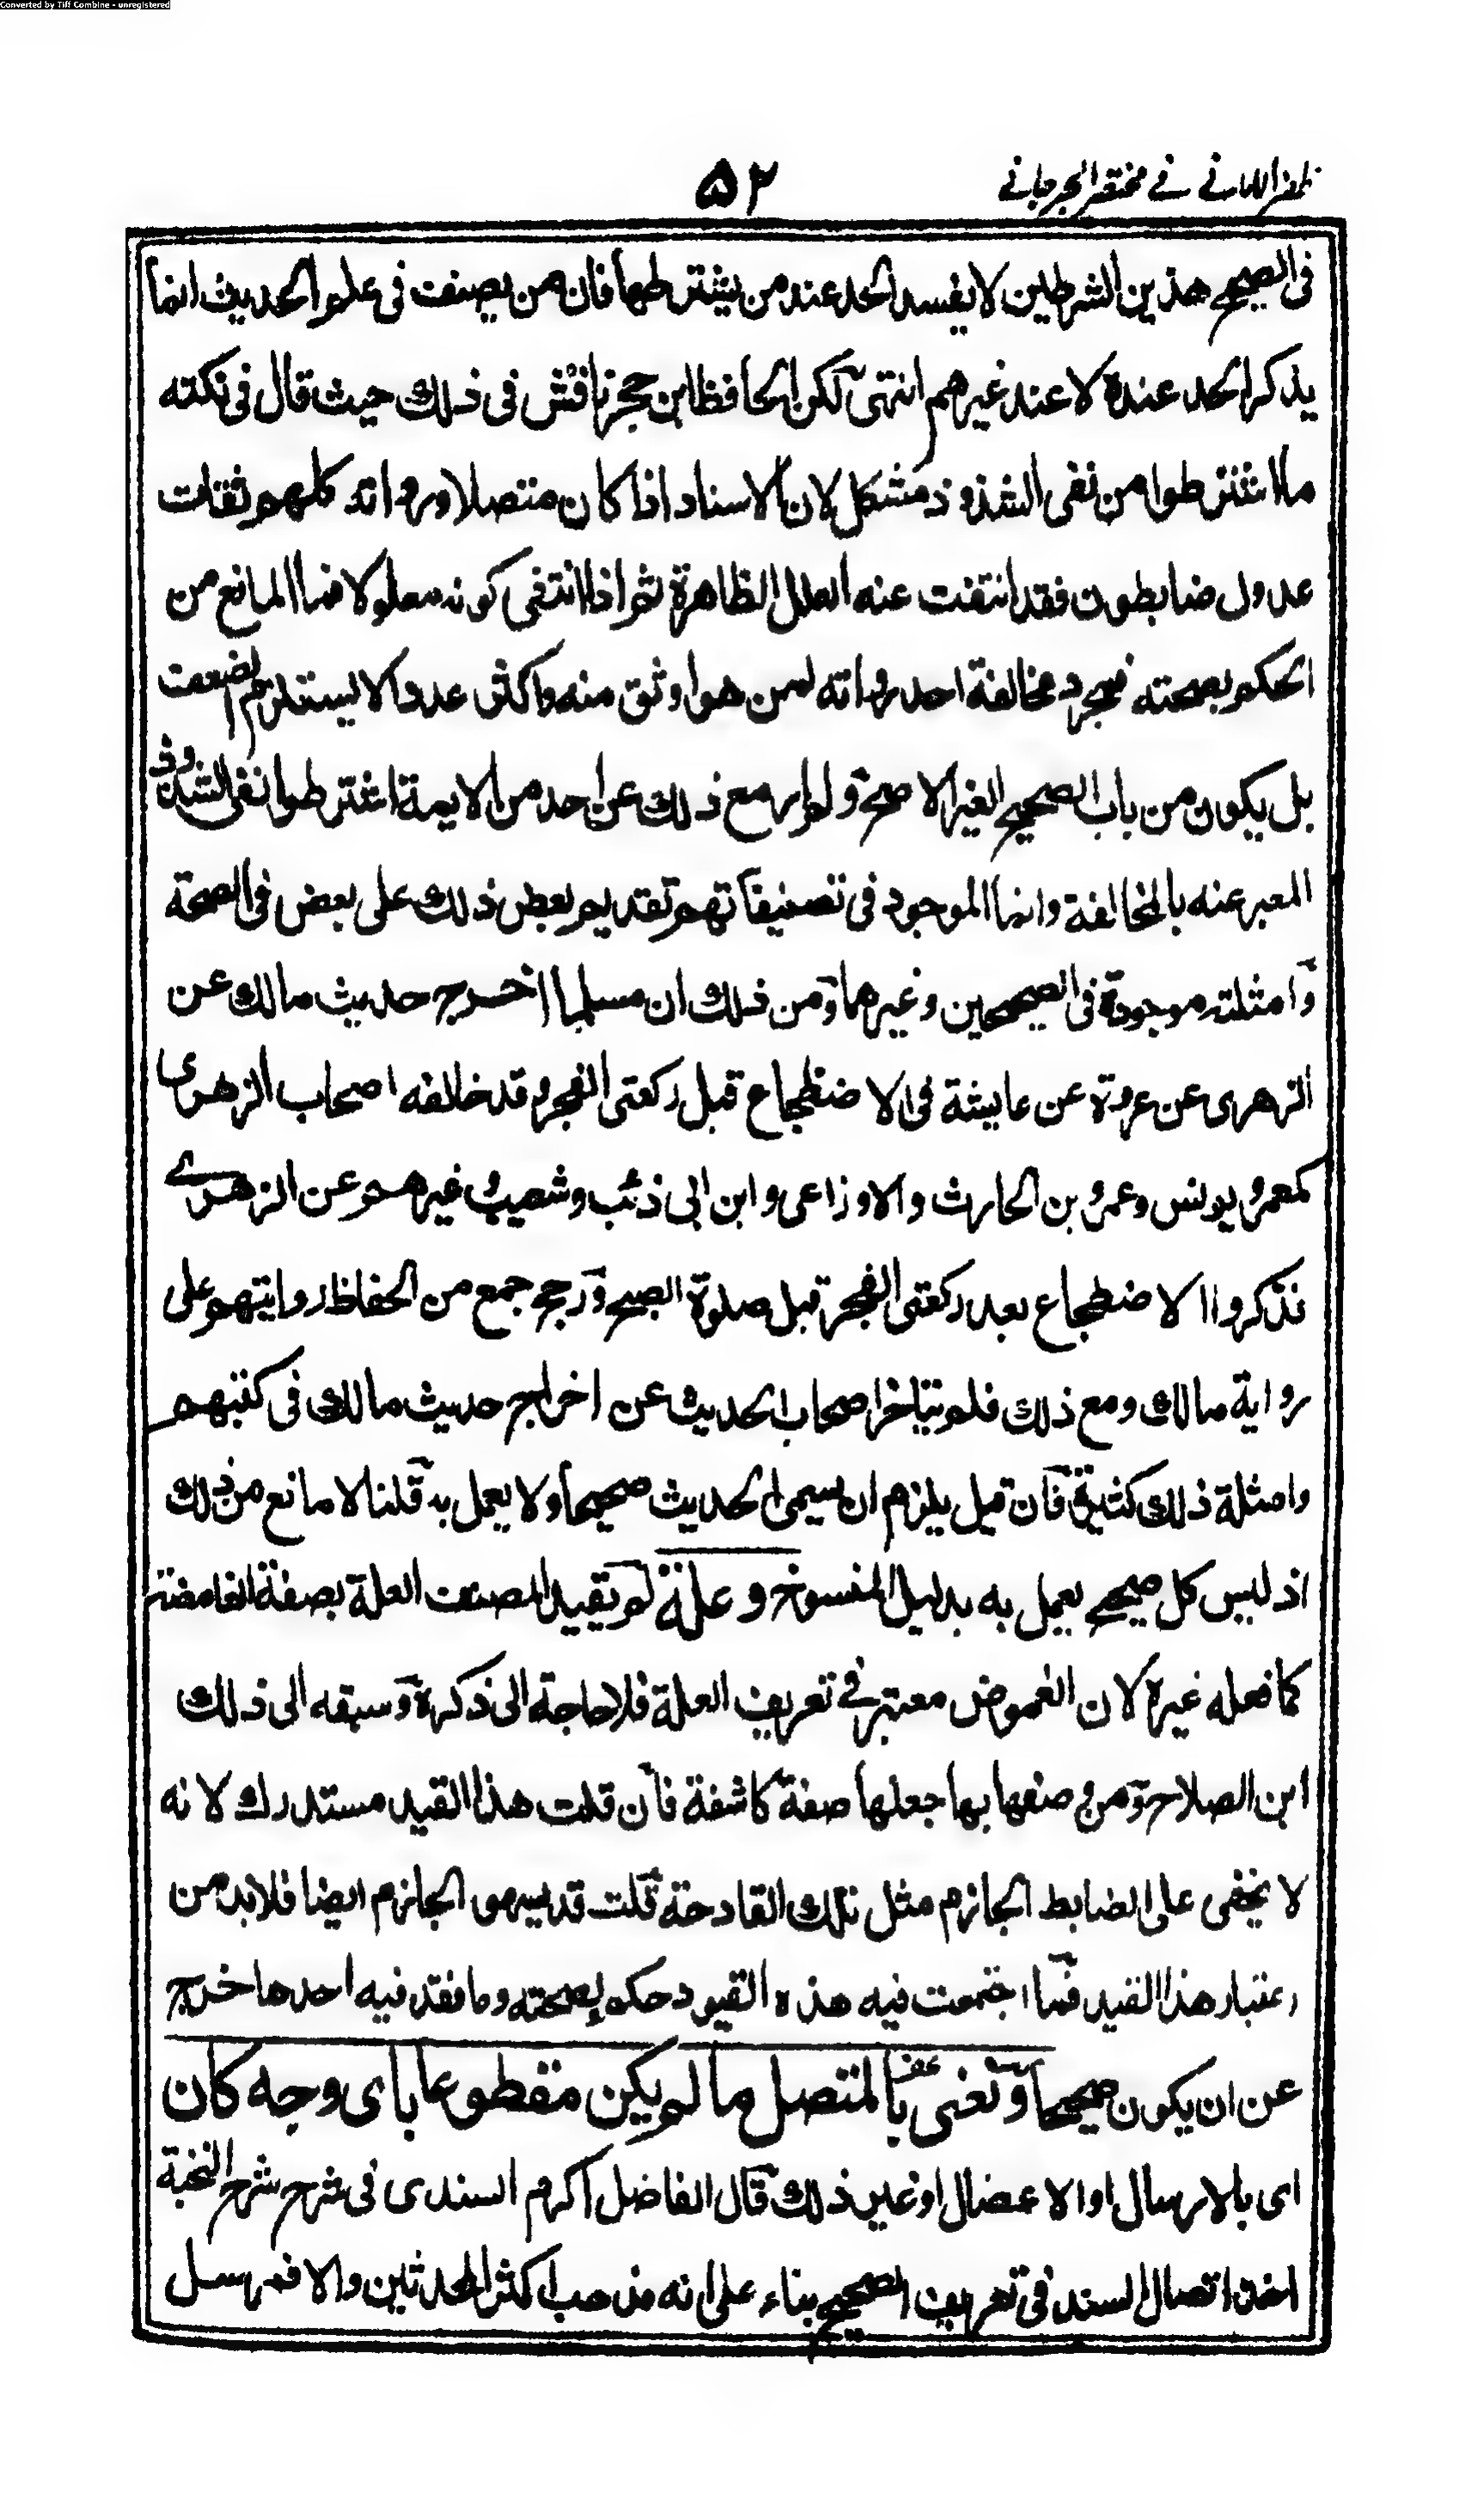 Converted by Tiff Combine - unregistered
ظفر الامانی فی مختصر الجرجانی
۵۲
فی الصحیح هذین الشرطین لا یفسد الحد عند من یشترطهما فان من یصنف فی علم الحدیث انما
یذکر الحد عنده لا عند غیرهم انتهی لکن الحافظ ابن حجر ناقش فی ذلك حیث قال فی نکته
ما اشترطوا من نفی الشذوذ مشکل لان الاسناد اذا کان متصلا ورواته کلهم ثقات
عدول ضابطون فقد انتفت عنه العلل الظاهرة ثم اذا انتفی کونه معلولا فما المانع من
الحکم بصحته فمجرد مخالفة احد رواته لمن هو اوثق منه واکثر عددا لا یستلزم الضعف
بل یکون من باب الصحیح الغیر الاصح ولم ار مع ذلك عن احد من الایمة اشترطوا نفی الشذوذ
المعبر عنه بالمخالفة وانما الموجود فی تصنیفاتهم تقدیم بعض ذلك علی بعض فی الصحة
وامثلته موجودة فی الصحیحین وغیرهما ومن ذلك ان مسلما اخرج حدیث مالك عن
الزهری عن عروة عن عایشة فی الاضطجاع قبل رکعتی الفجر وقد خالفه اصحاب الزهری
کمعمر ویونس وعمرو بن الحارث والاوزاعی وابن ابی ذئب وشعیب وغیرهم عن الزهری
فذکروا الاضطجاع بعد رکعتی الفجر قبل صلوة الصبح ورجح جمع من الحفاظ روایتهم علی
روایة مالك ومع ذلك فلم یتاخر اصحاب الحدیث عن اخراج حدیث مالك فی کتبهم
وامثلة ذلك کثیرة فان قیل یلزم ان یسمی الحدیث صحیحا ولا یعمل به قلنا لا مانع من ذلك
اذ لیس کل صحیح یعمل به بدلیل المنسوخ وعلة لم یقید المصنف العلة بصفة الغامضة
کما فعله غیره لان الغموض معتبر فی تعریف العلة فلا حاجة الی ذکره وسبقه الی ذلك
ابن الصلاح ومن وصفها بها جعلها صفة کاشفة فان قلت هذا القید مستدرك لانه
لا یخفی علی الضابط الجازم مثل تلك القادحة قلت قد یسهو الجازم ایضا فلا بد من
اعتبار هذا القید فما اجتمعت فیه هذه القیود حکم بصحته وما فقد فیه احدها خرج
عن ان یکون صحیحا ونعنی بالمتصل ما لم یکن مقطوعا بای وجه کان
ای بالارسال او الاعضال او غیر ذلك قال الفاضل اکرم السندی فی شرح شرح النخبة
اخذ اتصال السند فی تعریف الصحیح بناء علی انه مذهب اکثر المحدثین والا فمرسل